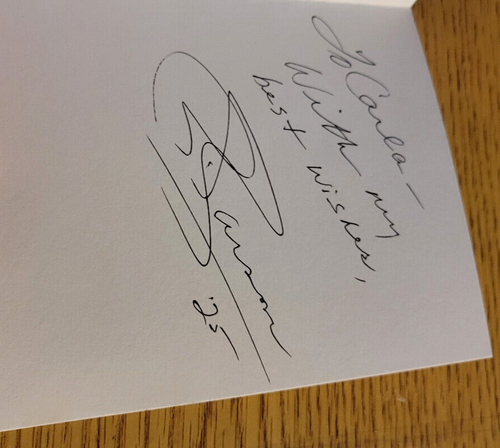 To Carla –
With my
best wishes,
'25